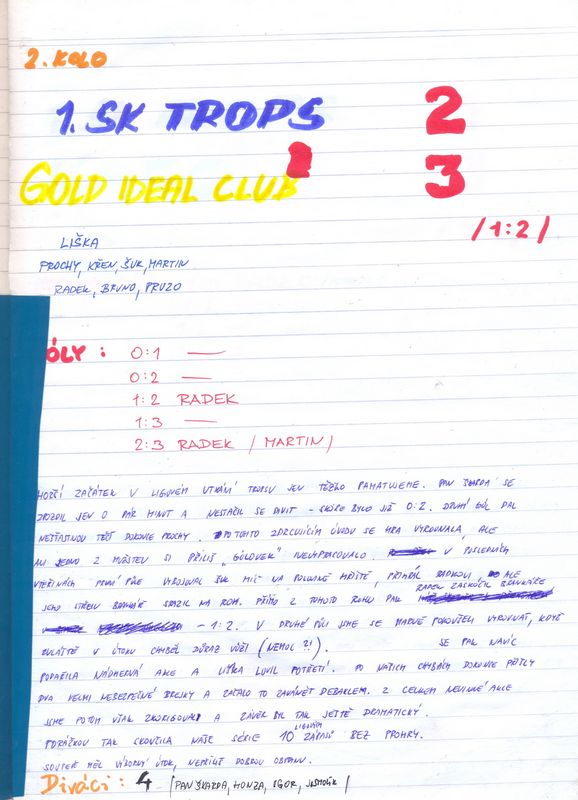 2. KOLO
1. SK TROPS 2
GOLD IDEAL CLUB 3
/1:2/
LIŠKA
PROCHY, KŘEN, ŠUK, MARTIN
RADEK, BRUNO, PRUZO
ÓLY : 0:1 —
0:2 —
1:2 RADEK
1:3 —
2:3 RADEK /MARTIN/
HORŠÍ ZAČÁTEK V LIGOVÉM UTKÁNÍ TROPSU JEN TĚŽKO PAMATUJEME. PAN ŠKARDA SE
ZPOZDIL JEN O PÁR MINUT A NESTAČIL SE DIVIT - SKÓRE BYLO JIŽ 0:2. DRUHÝ GÓL DAL
NEŠŤASTNOU TEČÍ DOKONCE PROCHY. PO TOMTO ZDRCUJÍCÍM ÚVODU SE HRA VYROVNALA, ALE
ANI JEDNO Z MUŽSTEV SI PŘÍLIŠ "GÓLOVEK" NEVYPRACOVALO. V POSLEDNÍCH
VTEŘINÁCH PRVNÍ PŮLE VYBOJOVAL ŠUK MÍČ NA POLOVINĚ HŘIŠTĚ, RADKOVI, ALE
JEHO STŘELU BRANKÁŘ SRAZIL NA ROH. PŘÍMO Z TOHOTO ROHU PAK RADEK ZASKOČIL BRANKÁŘE
- 1:2. V DRUHÉ PŮLI JSME SE MARNĚ POKOUŠELI VYROVNAT, KDYŽ
ZVLÁŠTĚ V ÚTOKU CHYBĚL DŮRAZ VŮČI (NEMOC ?!). SE PAK NAVÍC
PODAŘILA NÁDHERNÁ AKCE A LIŠKA LOVIL POTŘETÍ. PO NAŠICH CHYBÁCH DOKONCE PŘIŠLY
DVA VELMI NEBEZPEČNÉ BREJKY A ZAČALO TO ZAVÁNĚT DEBAKLEM. Z CELKEM NEVINNÉ AKCE
JSME POTOM VŠAK ZKORIGOVALI A ZÁVĚR BYL TAK JEŠTĚ DRAMATICKÝ.
PORÁŽKOU TAK SKONČILA NAŠE SÉRIE 10 LIGOVÝCH ZÁPASŮ BEZ PROHRY.
SOUPEŘ MĚL VÝBORNÝ ÚTOK, NEPŘÍLIŠ DOBROU OBRANU.
Diváci : 4 /PAN ŠKARDA, HONZA, IGOR, /